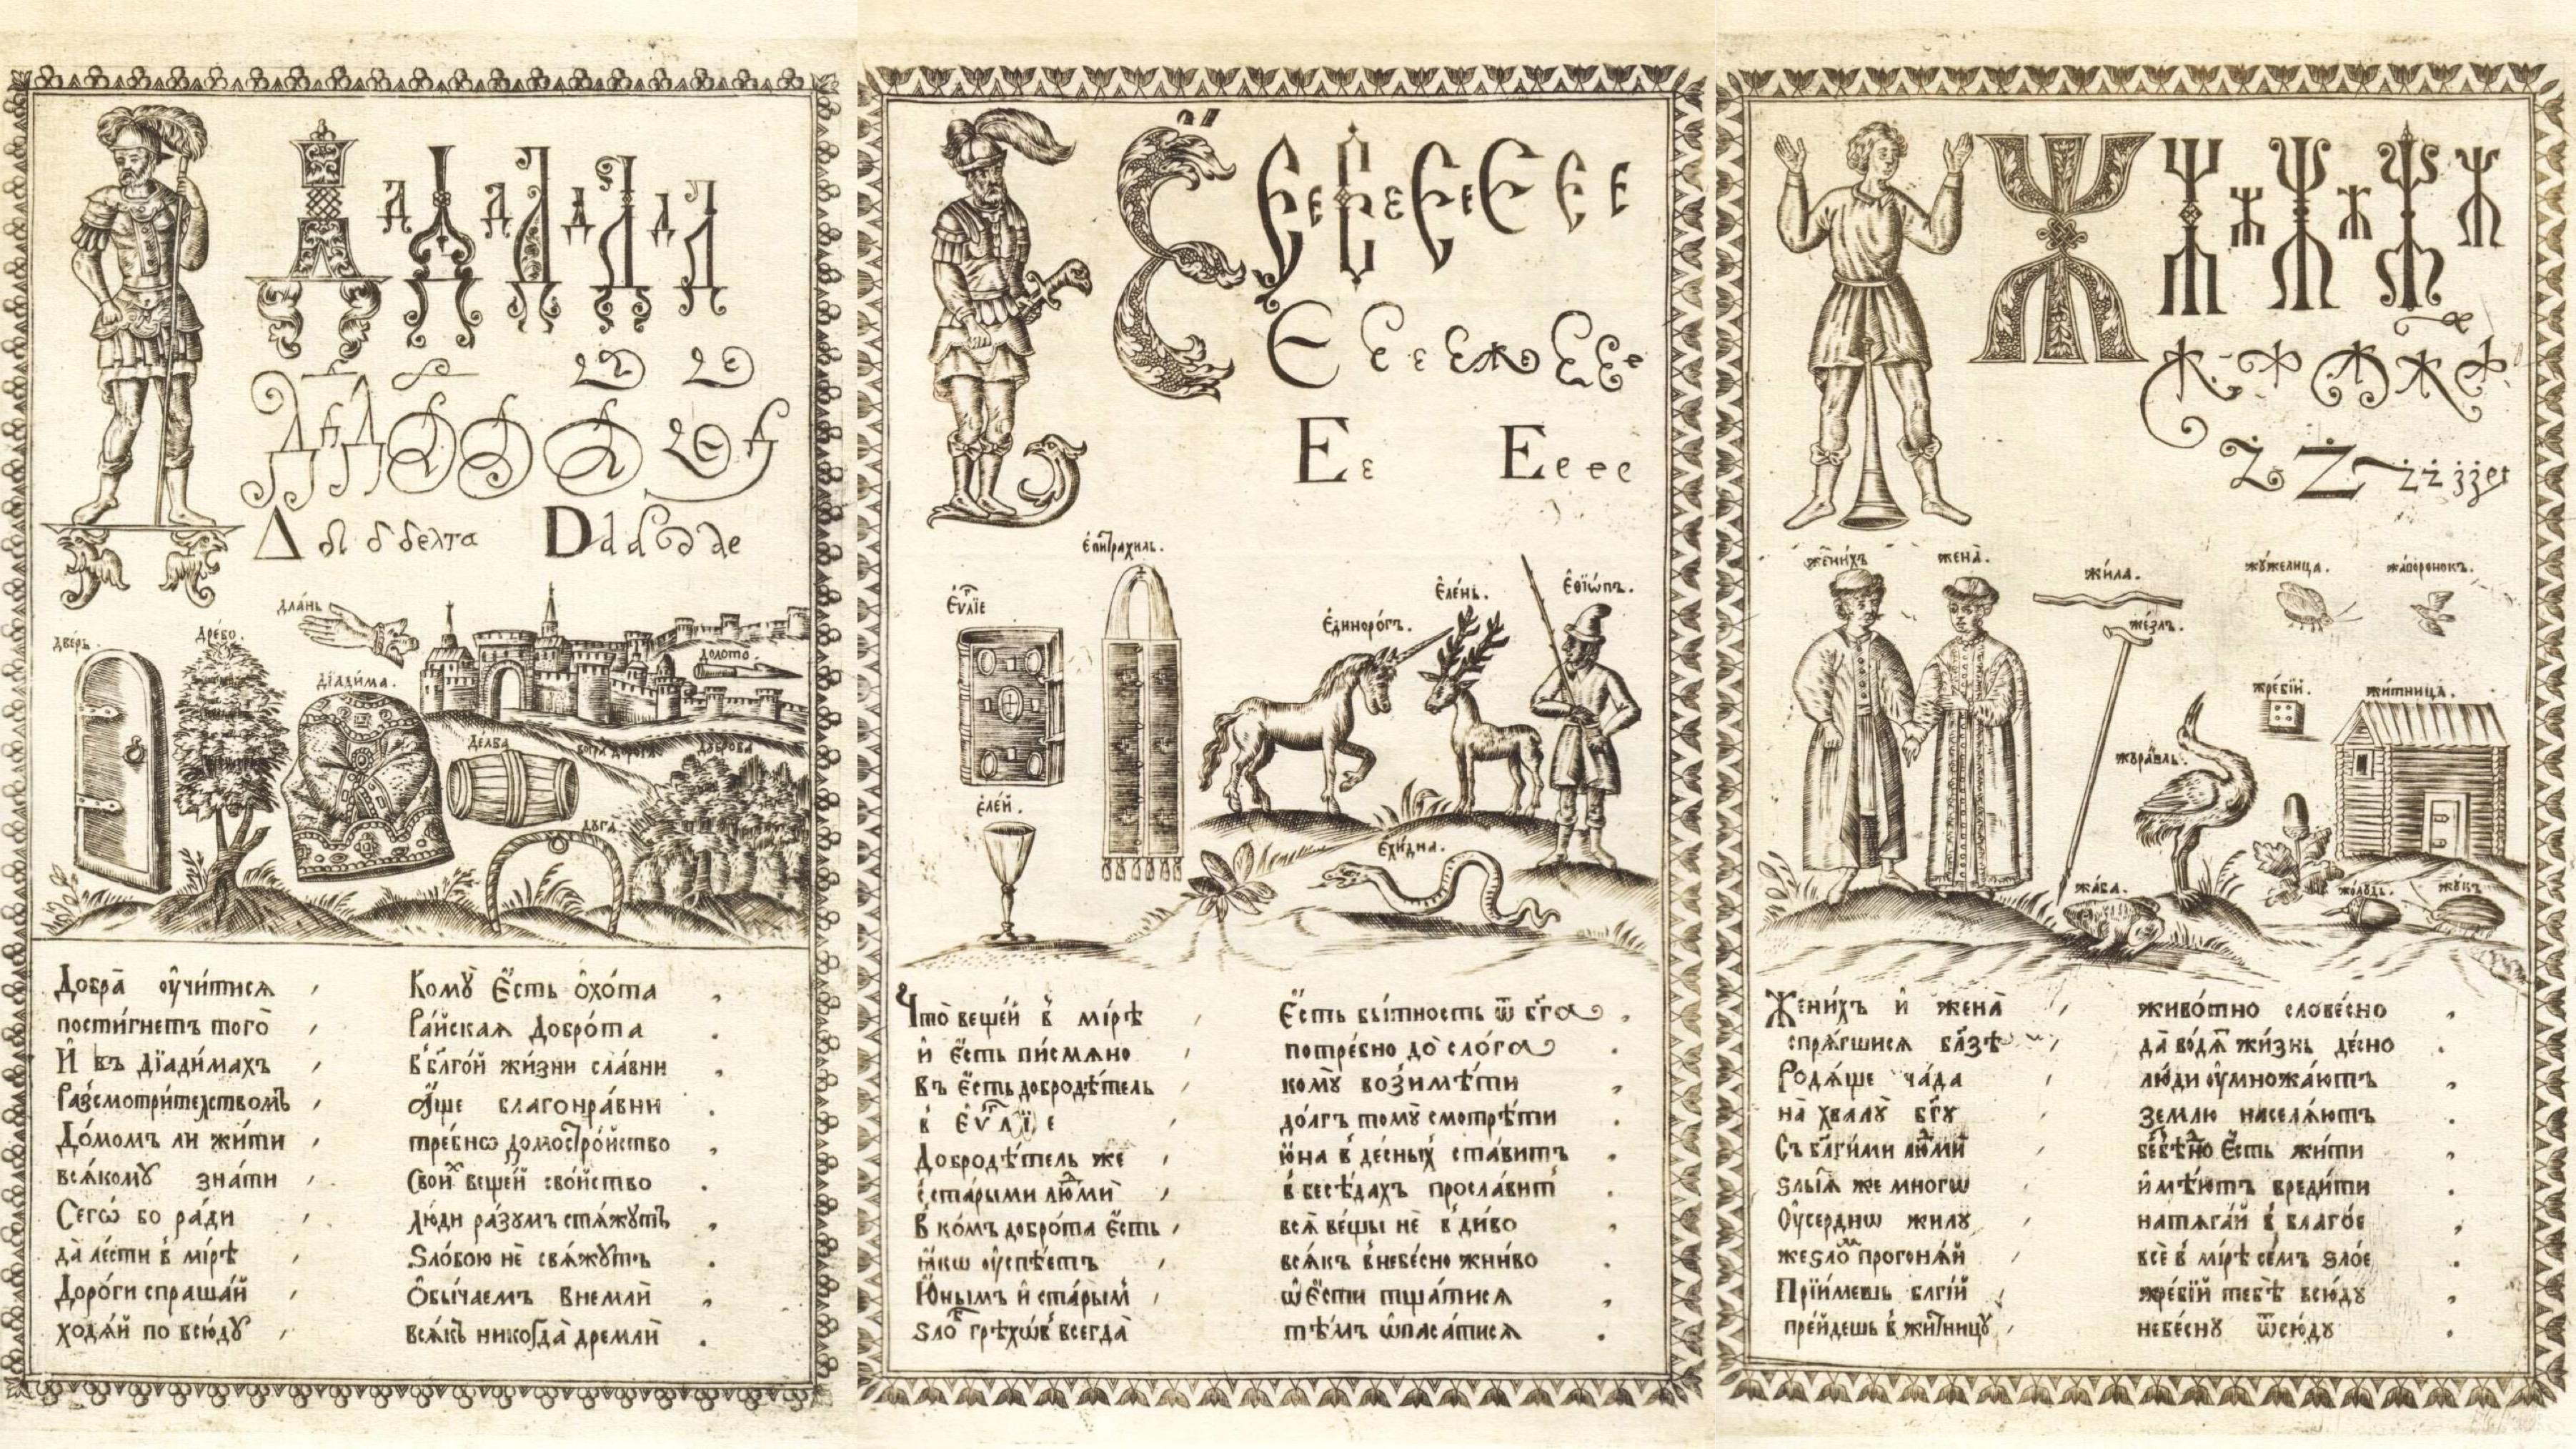 Д д Д д Д д Д д Д
Δ δ δ δелта D d d d d de
длань
дверь.
древо.
долото.
діадима.
делва
дорога
дуброва
дуга
Добра̀ ᲂу҆чи́тисѧ , Комꙋ̀ Є҆́сть ѻ҆хо́та ,
пости́гнетъ того̀ , Ра́йскаѧ Добро́та .
И҆ въ дїади́махъ , в̾ бл҃го́й жи́зни сла́вни ,
Разсмотри́телствомъ , а҆́ще благонра́вни .
До́момъ ли жи́ти , тре́бнѡ домостро́йство .
всѧ́комꙋ зна́ти , свои́х веще́й сво́йство .
Сегѡ̀ бо ра́ди , лю́ди ра́зꙋмъ стѧ́жꙋтъ ,
да ле́сти в̾ мі́рѣ , Ѕло́бою не свѧ́жꙋтъ .
Доро́ги спраша́й , Ѻ҆бы́чаемъ внемлѝ ,
ходѧ́й по всю́дꙋ , всѧ́къ никогда̀ дремлѝ .
Є е Є е Є е Є Є е
Е ε Е е е е
є҆питрахиль.
є҆ѵлїе
є҆ле́нь.
є҆ѳїѡ́пъ.
є҆диноро́гъ.
є҆ле́й.
є҆хи́дна.
Что̀ веще́й в̾ мі́рѣ , Є҆́сть бы́тность ѿ бг҃а .
и҆ є҆́сть пи́смѧно , потре́бно до сло́га .
въ є҆́сть доброд́ѣтель , комꙋ̀ возимѣ́ти ,
в̾ є҆ѵⷢ҇лїе , до́лгъ томꙋ̀ смотрѣ́ти .
Доброд́ѣтель же , ю҆́на в̾ де́сных ста́витъ .
с̾ ста́рыми людмѝ , в̾ бесѣ́дахъ просла́витъ .
В̾ ко́мъ добро́та є҆́сть , всѧ̀ ве́щы не в̾ ди́во .
ꙗ҆́кѡ ᲂу҆спѣ́етъ , всѧ́къ в̾небе́сно жни́во .
Ю҆́нымъ и҆ ста́рым , ѡ҆ є҆́сти тща́тисѧ ,
ѕло грѣхѡ́в всегда̀ , тѣ́мъ ѡ҆паса́тисѧ .
Ж Ж ж Ж ж Ж ж
жени́хъ
жена̀.
жи́ла.
жꙋ́желица.
жа́воронокъ.
же́злъ.
жре́бїй.
жи́тница.
жꙋра́вль.
жа́ба.
жо́лꙋдь.
жꙋкъ
Жени́хъ и҆ жена̀ , живо́тно слове́сно ,
спрѧ́гшисѧ бл҃зѣ , да водѧ́т жи́знь де́сно .
Родѧ́ще ча́да , лю́ди ᲂу҆множа́ютъ ,
на хвалꙋ̀ бг҃ꙋ , зе́млю населѧ́ютъ .
Съ бл҃ги́ми людмѝ , бебѣ́дно є҆́сть жи́ти ,
ѕлы́ѧ же многѡ , и҆мѣ́ютъ вреди́ти .
Оу҆се́рднѡ жилꙋ , натѧга́й в̾ благо́е ,
же ѕло́м прогонѧ́й , всѐ в̾ мі́рѣ се́мъ ѕло́е .
Прїи́мешь бл҃гі́й , жре́бїй тебѣ̀ всю́дꙋ ,
пре́йдешь в̾ жи́тницꙋ , небе́снꙋ ѿсю́дꙋ .